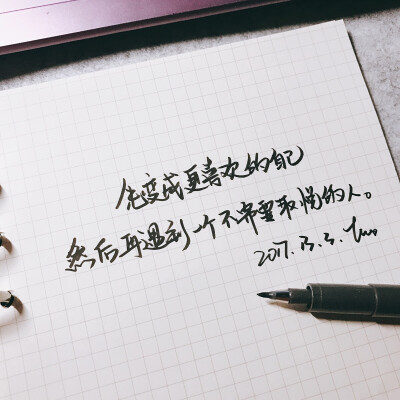 先变成更喜欢的自己
然后再遇到一个不需要取悦的人。
2017.3.3.